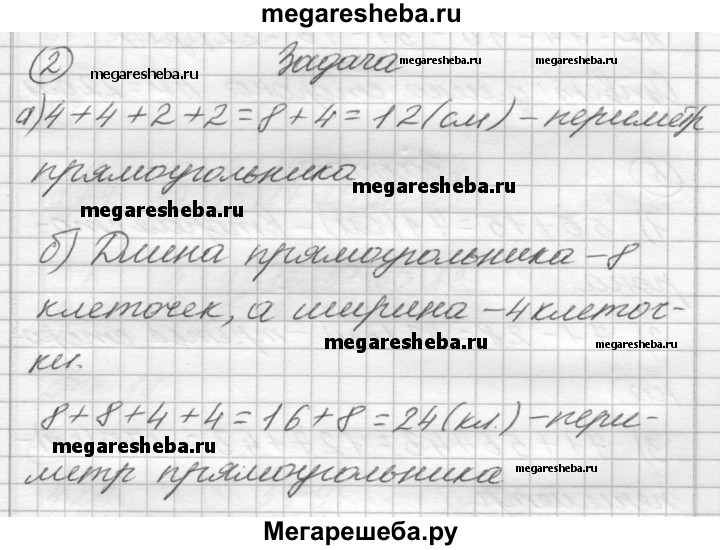 megaresheba.ru
② Задача
megaresheba.ru
megaresheba.ru
а) 4+4+2+2=8+4=12(см) – периметр
прямоугольника
megaresheba.ru
megaresheba.ru
б) Длина прямоугольника – 8
клеточек, а ширина – 4 клеточ-
megaresheba.ru
megaresheba.ru
ки.
8+8+4+4=16+8=24(кл.) – пери-
megaresheba.ru
метр прямоугольника
megaresheba.ru
Мегарешеба.ру